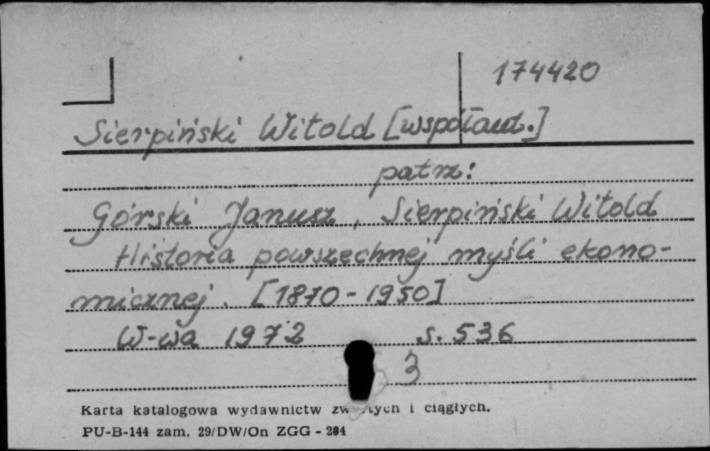 174420
Sierpiński Witold [współaut.]
patrz:
Górski Janusz, Sierpiński Witold
Historia powszechnej myśli ekono-
micznej. [1870-1950]
W-wa 1972 s. 536
3
Karta katalogowa wydawnictw i ciągłych.
PU-B-144 zam. 29/DW/On ZGG - 204